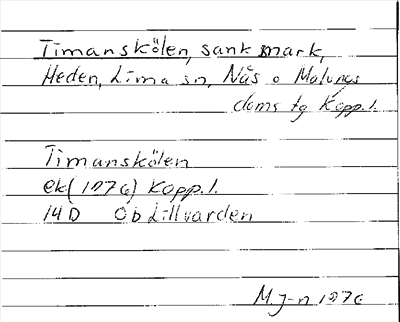 Timanskölen, sank mark,
Heden, Lima sn, Nås o Malungs
doms tg Kopp. l.
Timanskölen
ek(1976) Kopp. l.
14D 0b Lillvarden
M J-n 1976